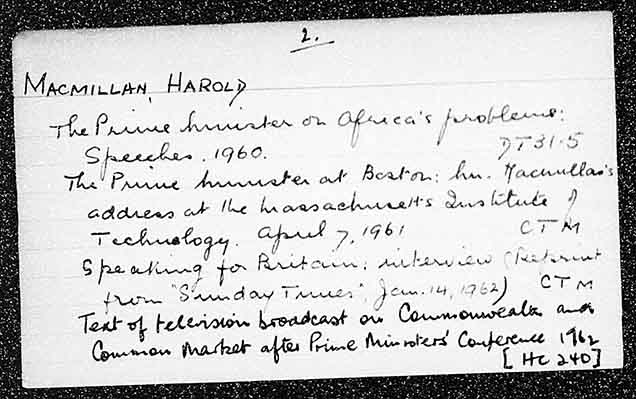 2.
MACMILLAN, HAROLD
The Prime Minister on Africa's problems:
Speeches. 1960. DT31.5
The Prime Minister at Boston: Mr. Macmillan's
address at the Massachusetts Institute of
Technology. April 7, 1961 CTM
Speaking for Britain: interview (Reprint
from "Sunday Times" Jan. 14, 1962) CTM
Text of television broadcast on Commonwealth and
Common Market after Prime Ministers' Conference 1962
[HC 240]